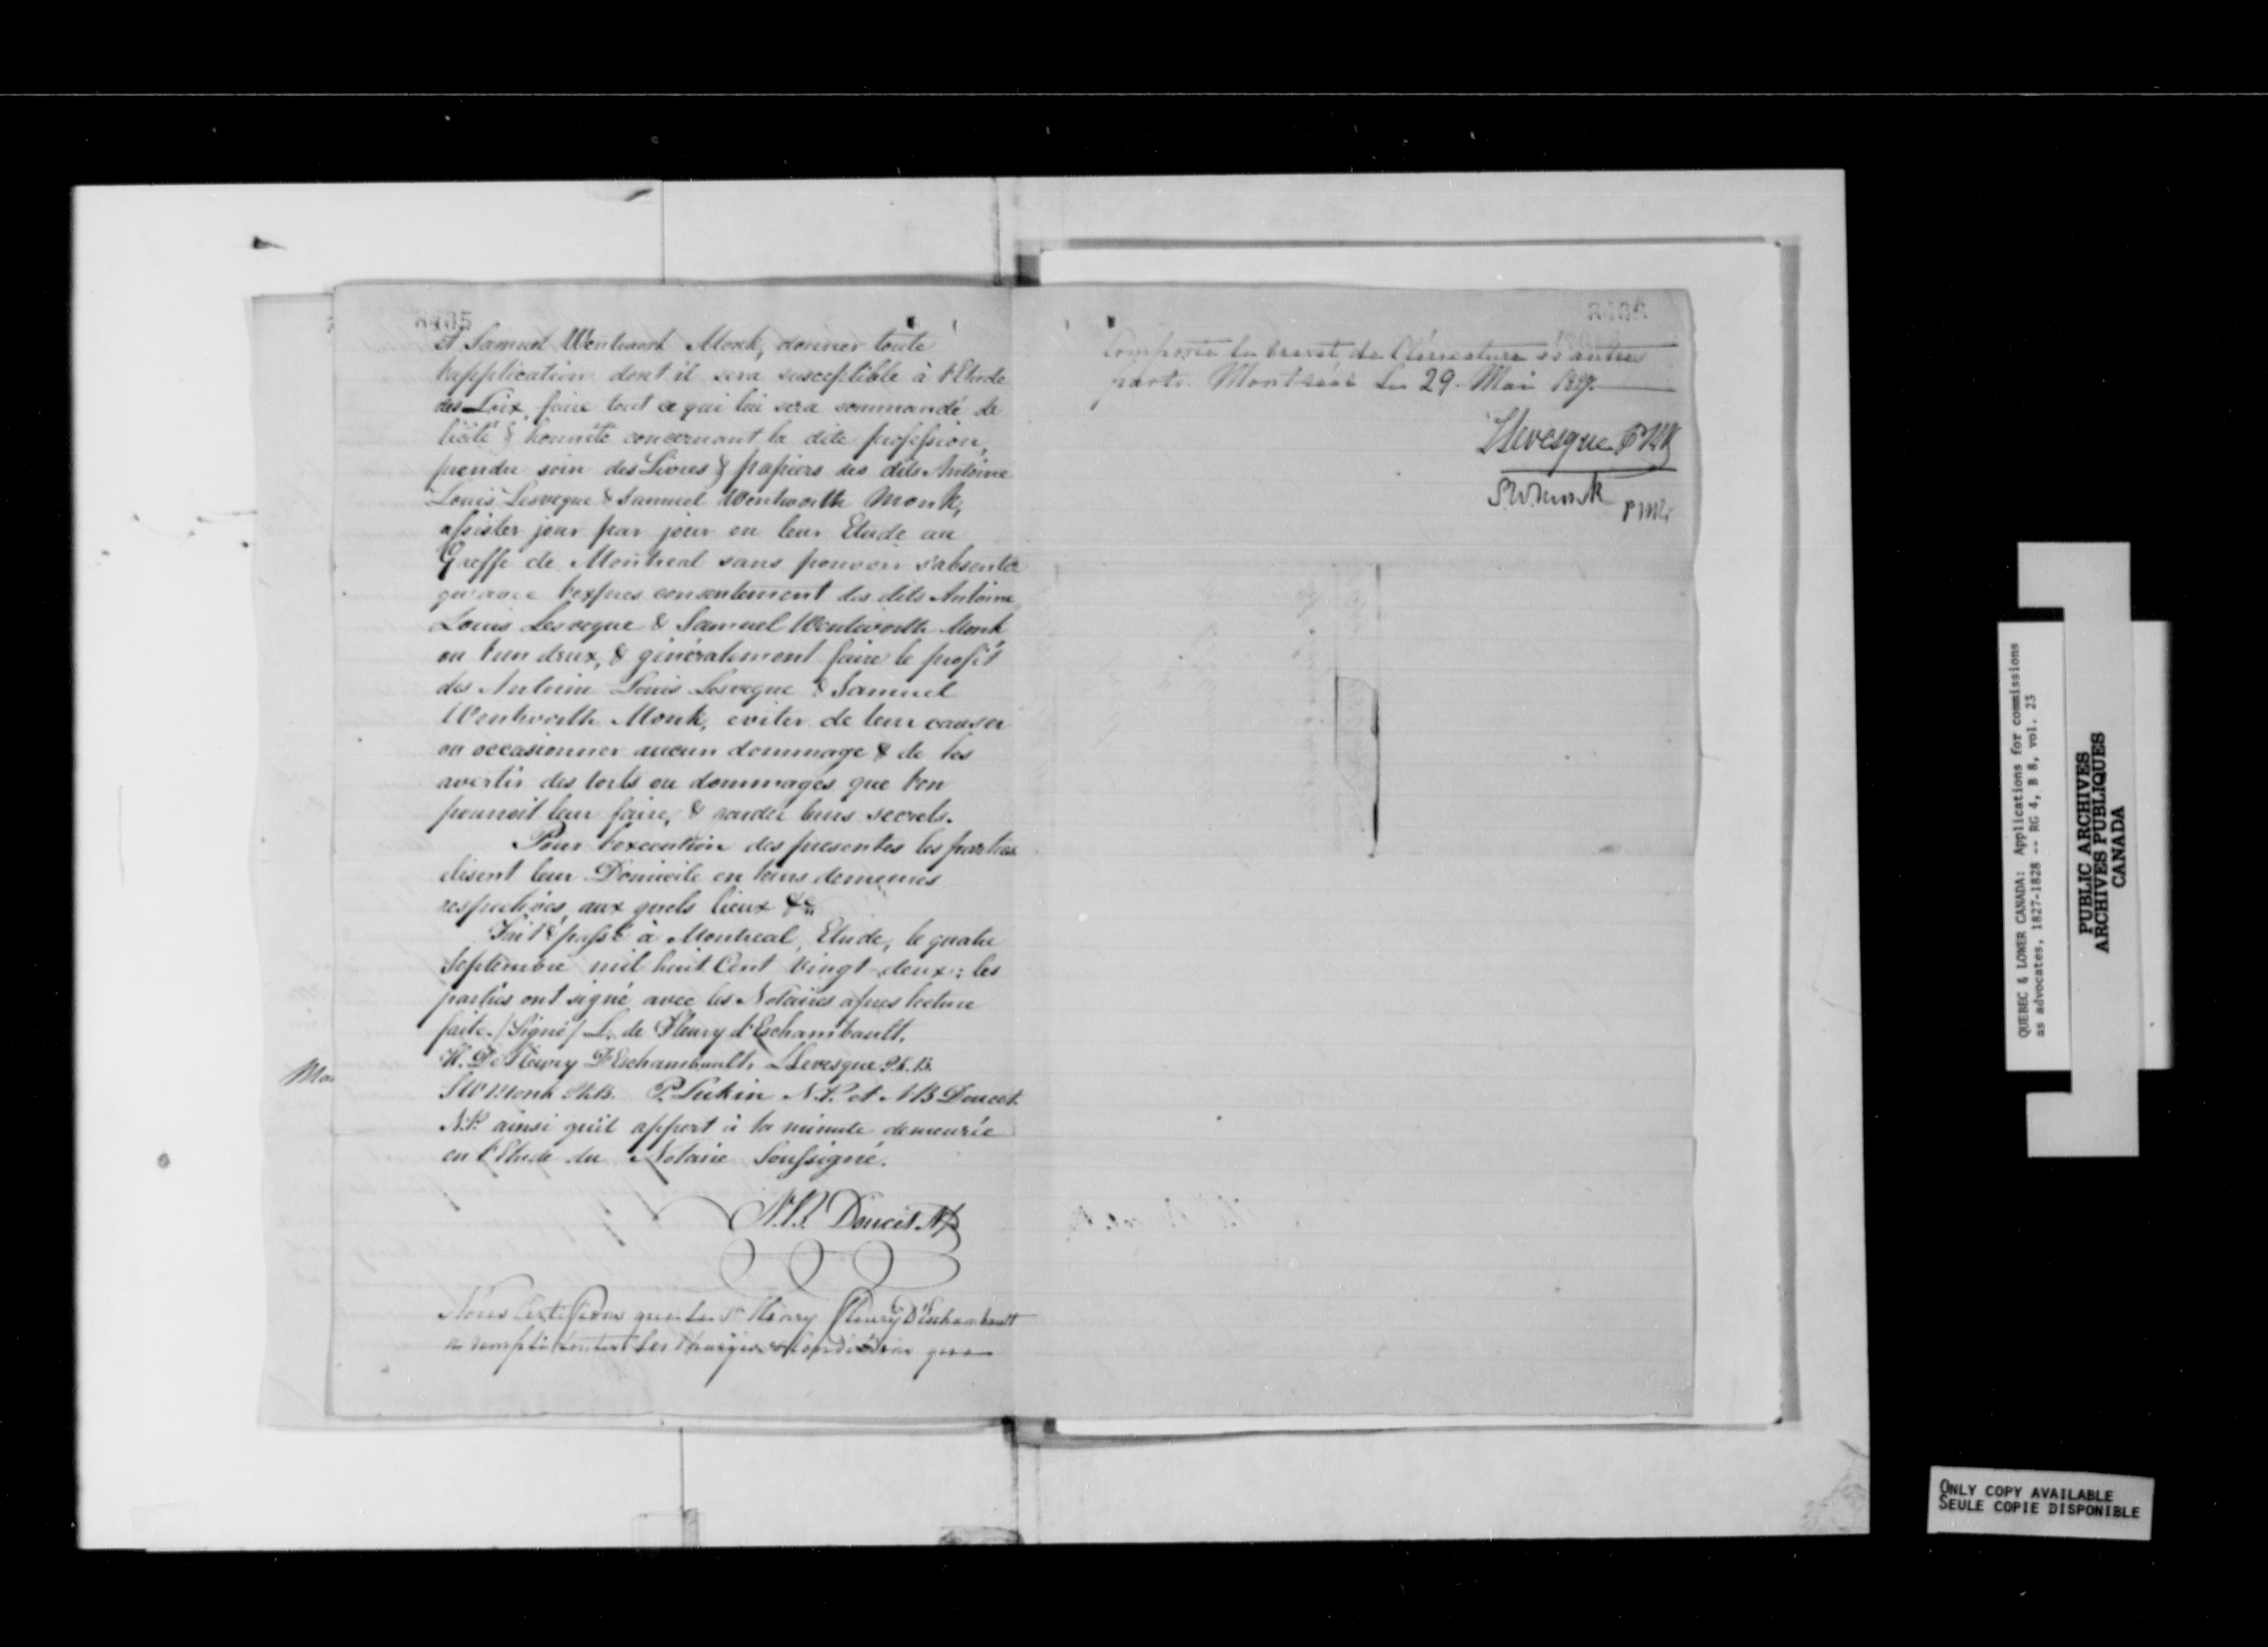 8405
et Samuel Wentworth Monk, donner toute
l'application dont il sera susceptible à l'Etude
des Loix, faire tout ce qui lui sera commandé de
licite & honnête concernant la dite profession,
prendre soin des Livres & papiers des dits Antoine
Louis Levesque & Samuel Wentworth Monk,
assister jour par jour en leur Etude au
Greffe de Montreal sans pouvoir s'absenter
qu'avec l'expres consentement des dits Antoine
Louis Levesque & Samuel Wentworth Monk
ou l'un deux, & généralement faire le profit
des Antoine Louis Levesque & Samuel
Wentworth Monk, eviter de leur causer
ou occasionner aucun dommage & de les
avertir des torts ou dommages que l'on
pourroit leur faire, & garder leurs secrets.
Pour l'execution des presentes les parties
elisent leur Domicile en leurs demeures
respectives, aux quels lieux &c
Fait & passé à Montreal, Etude, le quatre
Septembre mil huit Cent Vingt-deux; les
parties ont signé avec les Notaires apres lecture
faite. /Signé/ L. de Fleury d'Eschambault.
H. De Fleury D'Eschambault, LLevesque P.K.B.
SW Monk P.K.B. P. Lukin N.P. et NB Doucet
N.P. ainsi qu'il appert à la minute demeurée
en l'Etude du Notaire Soussigné.
N.B. Doucet NP
Nous Certifions que le Sr. Henry Fleury D'Eschambault
a rempli toutes les charges & conditions que
Mo
8406
comporte le brevet de Cléricature d'autre
part. Montréal le 29 Mai 1827.
LLevesque PKB
SWMonk
QUEBEC & LOWER CANADA: Applications for commissions
as advocates, 1827-1828 -- RG 4, B 8, vol. 23
PUBLIC ARCHIVES
ARCHIVES PUBLIQUES
CANADA
ONLY COPY AVAILABLE
SEULE COPIE DISPONIBLE